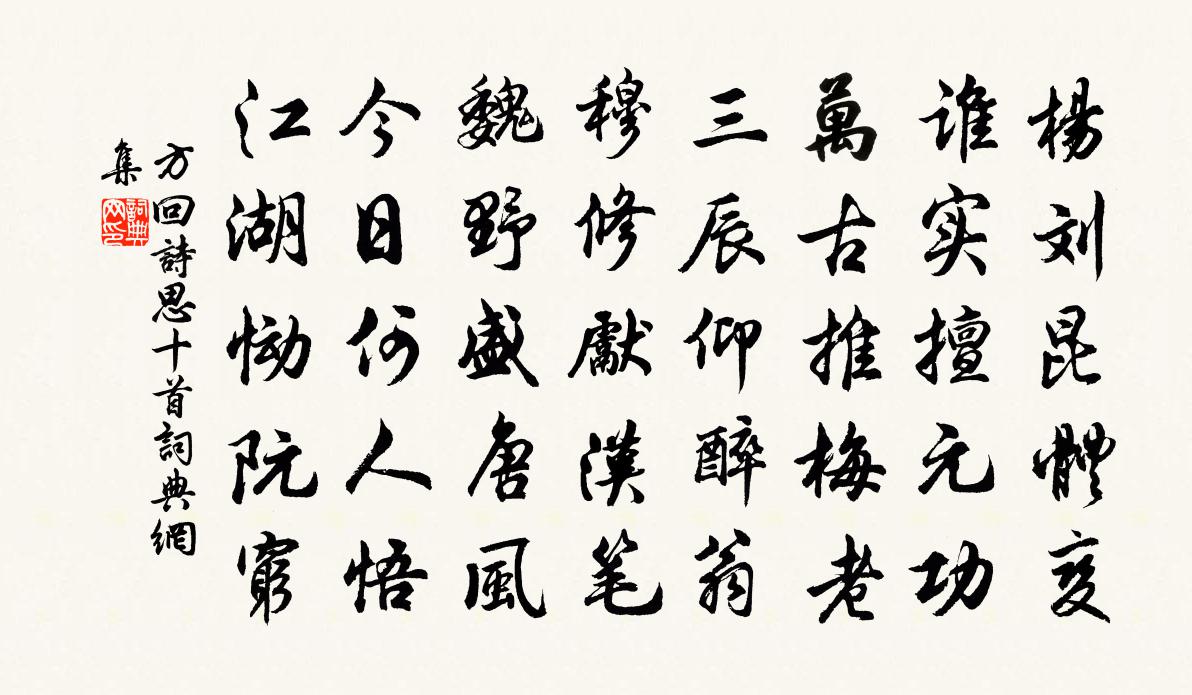 楊刘昆體变
谁实擅元功
萬古推梅老
三辰仰醉翁
穆修獻漢笔
魏野盛唐風
今日何人悟
江湖恸阮窮
方回詩思十首詞典網
集
詞典
网印